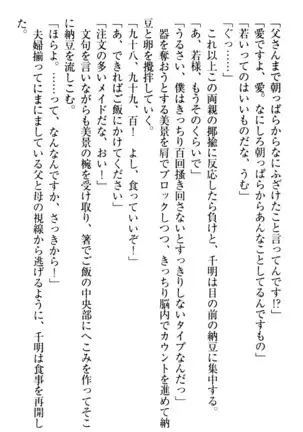 「父さんまで朝っぱらからなにふざけたこと言ってんです!?」
「愛ですよ、愛。なにしろ朝っぱらからあんなことしてるんですもの」
「若いってのはいいものだな、うむ」
「ぐっ……」
これ以上この両親の揶揄に反応したら負けと、千明は目の前の納豆に集中する。
「あ、若様、もうそのくらいで」
「うるさい、僕はきっちり百回掻き回さないとすっきりしないタイプなんだっ」
器を奪おうとする美景を肩でブロックしつつ、きっちり脳内でカウントを進めて納
豆と卵を攪拌していく。
「九十八、九十九、百! よし、食っていいぞ!」
「あ、できればご飯にかけてください」
「注文の多いメイドだな、おい!」
文句を言いながらも美景の椀を受け取り、箸でご飯の中央部にへこみを作ってそこ
に納豆を流しこむ。
「ほらよ。……って、なんなんですか、さっきから!」
夫婦揃ってにまにましている父と母の視線から逃げるように、千明は食事を再開し
た。